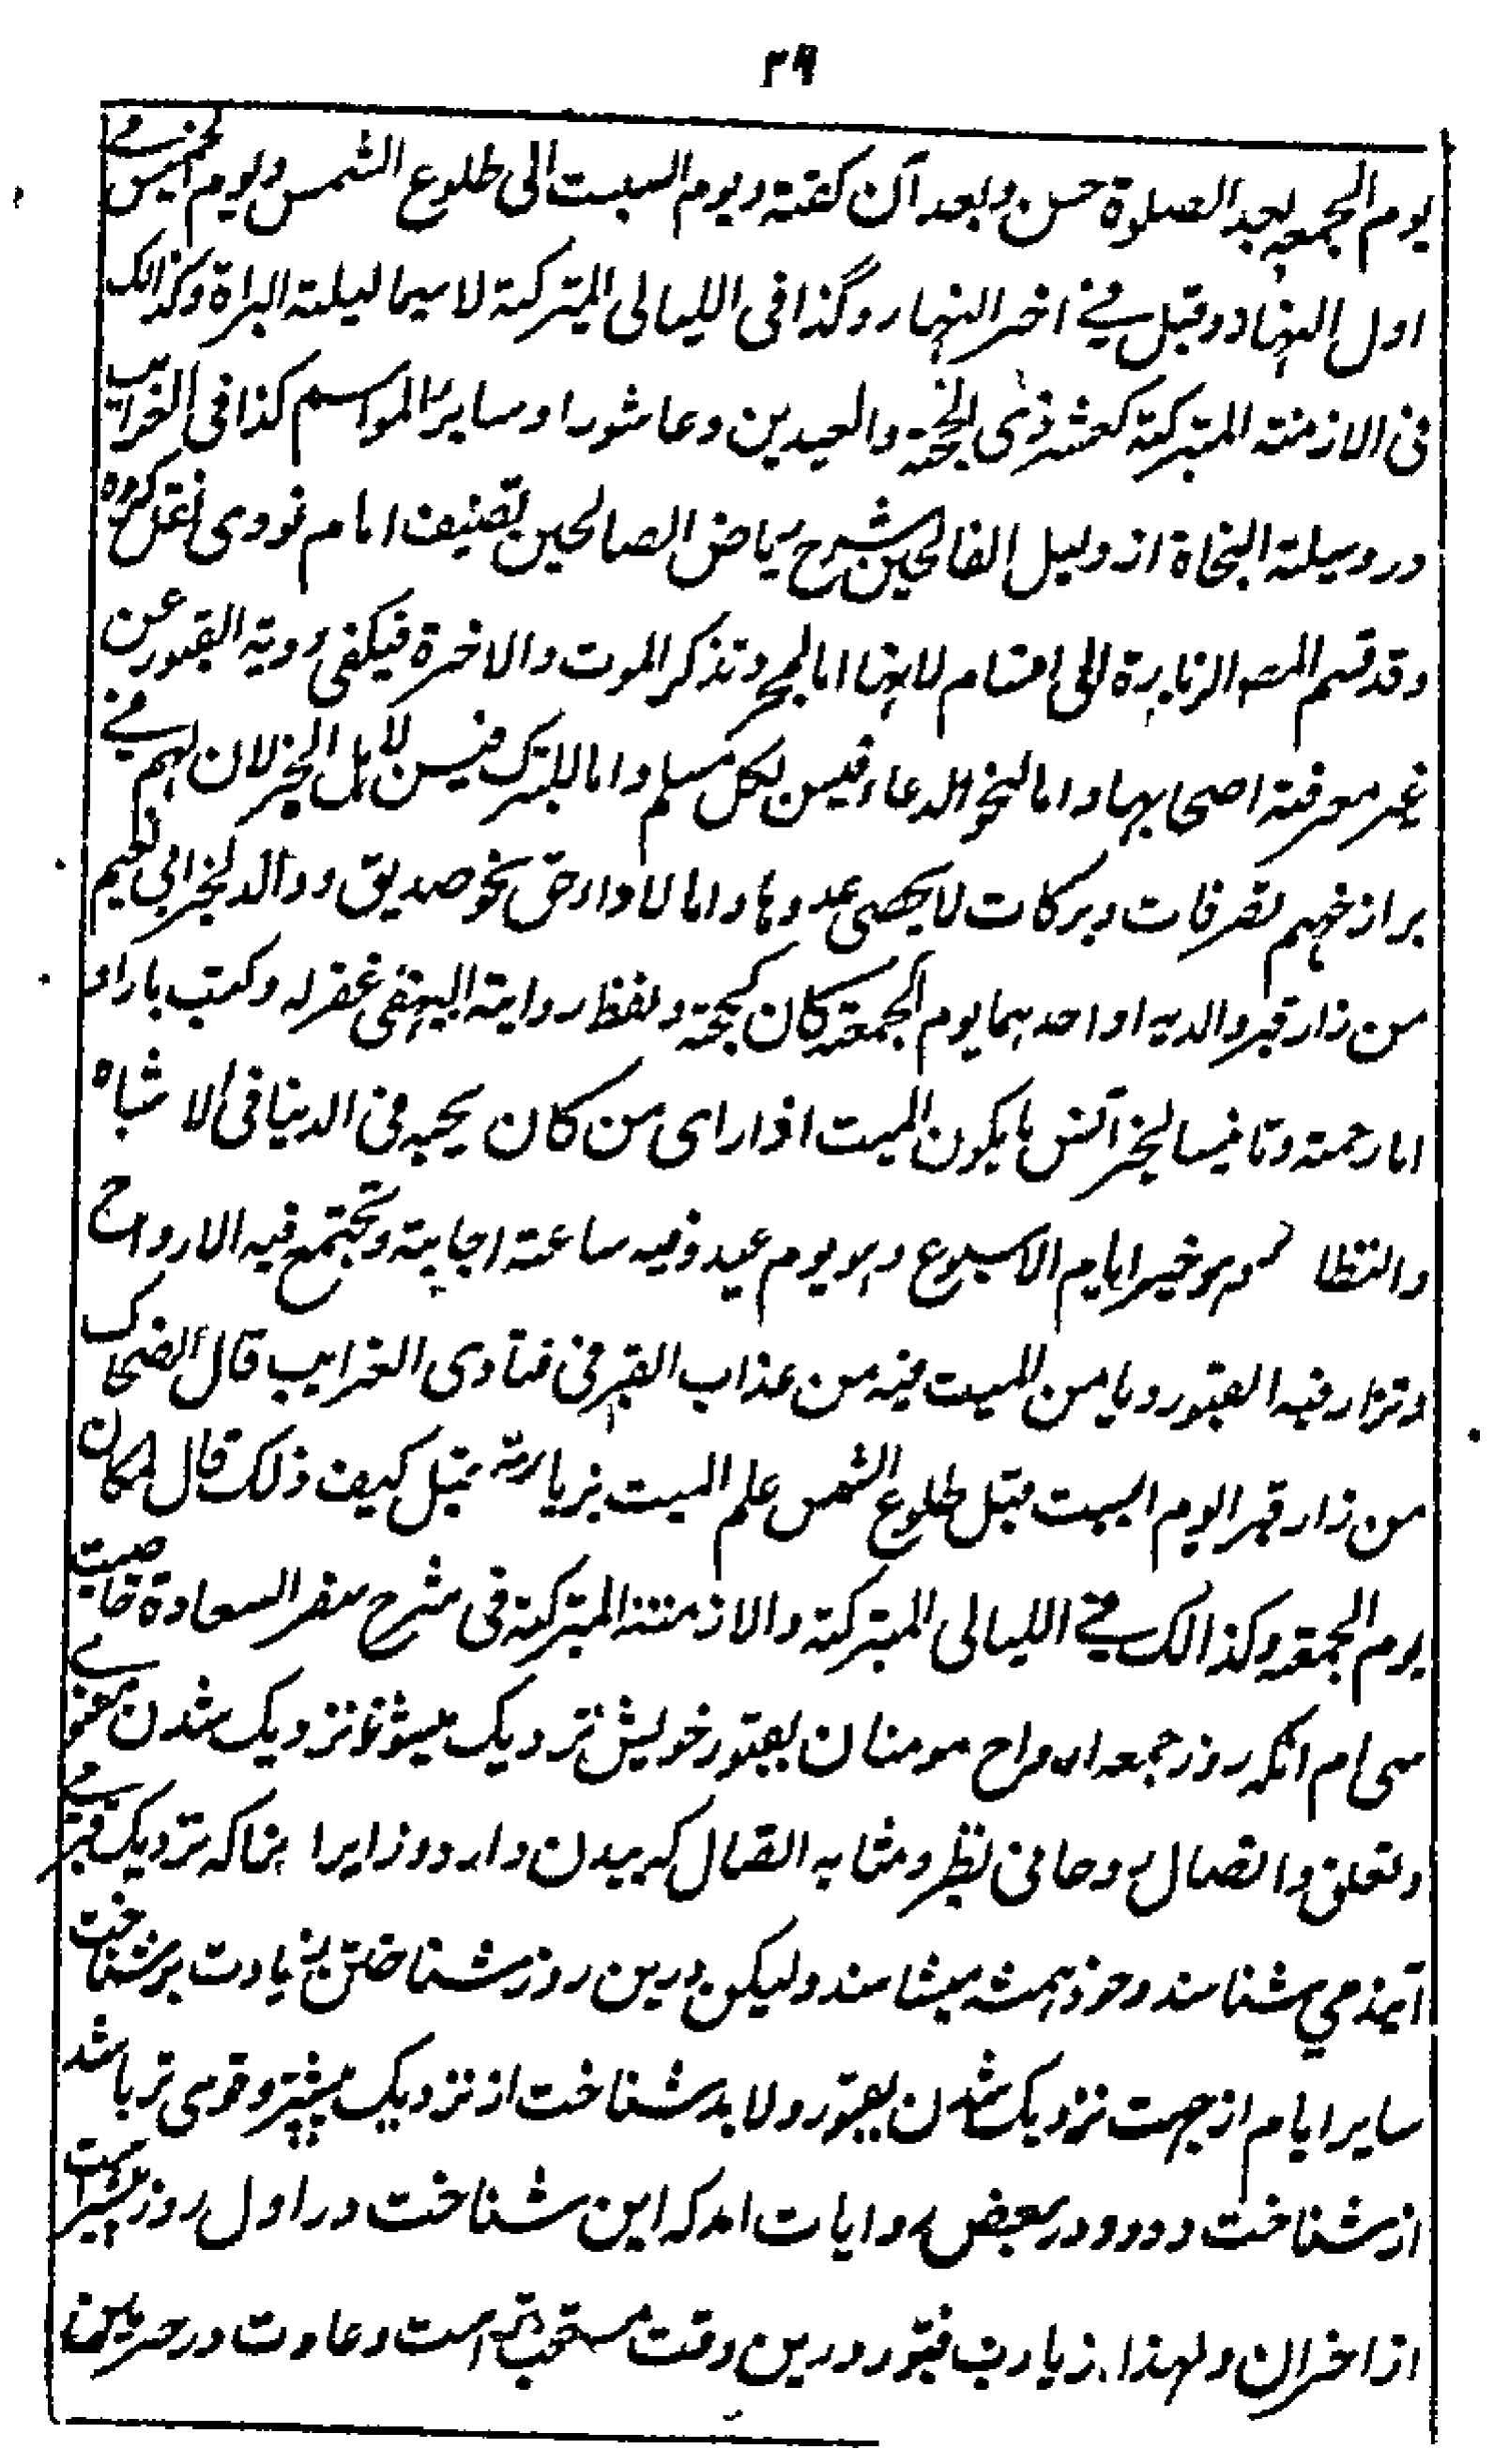 ٣٩
يوم الجمعه بعد الصلوة حسن وبعد آن كفته ويوم السبت الى طلوع الشمس ويوم الخميس فے
اول النهار وقبل فے اخر النهار وكذا فى الليالى المتبركة لا سيما ليلته البراة وكذالك
فى الازمنته المتبركة كعشر ذى الحجة والعيدين وعاشورا وساير المواسم كذا فى الغرايب
در وسيلته النجاة از دليل الفالحين شرح رياض الصالحين تصنيف امام نووى نقل كرده
وقد قسم المصـ الزيارة الى اقسام لانها اما لمجرد تذكر الموت والاخرة فيكفى روية القبور عن
غير معرفة اصحابها واما لنحو الدعاء فيسن لكل مسلم واما للتبرك فيسن لاهل الخير لان لهم فے
برازخهم تصرفات وبركات لا يحصى عددها واما لاداء حق نحو صديق ووالد لخبر ابى نعيم
من زار قبر والديه او احدهما يوم الجمعة كان كحجة ولفظ رواية البيهقى غفر له وكتب بارا و
اما رحمة وتانيسا لخبر آنس ما يكون الميت اذا راى من كان يحبه فى الدنيا فى الاشباه
والنظاير وهو خير ايام الاسبوع وهو يوم عيد وفيه ساعة اجابة وتجتمع فيه الارواح
وتزار فيه القبور ويامن الميت فيه من عذاب القبر فى فتاوى الغرايب قال الضحاك
من زار قبرا يوم السبت قبل طلوع الشمس علم الميت بزيارته قيل كيف ذلك قال لمكان
يوم الجمعة وكذالك فے الليالى المتبركة والازمنته المتبركة فى شرح سفر السعادة خاصيت
سى ام آنكه روز جمعه ارواح مومنان بقبور خويش نزديك ميشوند نزديك شدن معنوے
وتعلق واتصال روحانى نظير ومشابه اتصال كه ببدن دارد وزايرا نرا كه نزديك قبر مے
آيند مي شناسند وخود هميشه ميشناسند وليكن درين روز شناختن زيادت بر شناخت
ساير ايام از جهت نزديك شدن بقبور ولابد شناخت از نزديك بيشتر وقوى تر باشد
از شناخت دور ودر بعض روايات امد كه اين شناخت در اول روز بيشتر است
از اخران ولهذا زيارت قبور درين وقت مستحب تر است وعادت در حرمين